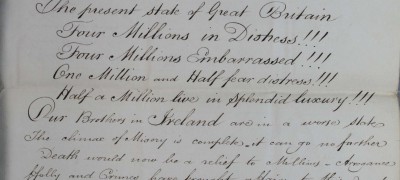 The present state of Great Britain
Four Millions in Distress!!!
Four Millions Embarrassed!!!!
One Million and Half fear distress!!!
Half a Million live in Splendid luxury!!!!
Our Brothers in Ireland are in a worse state
The climax of Misery is complete it can go no farther
Death would now be a relief to Millions – Arrogance